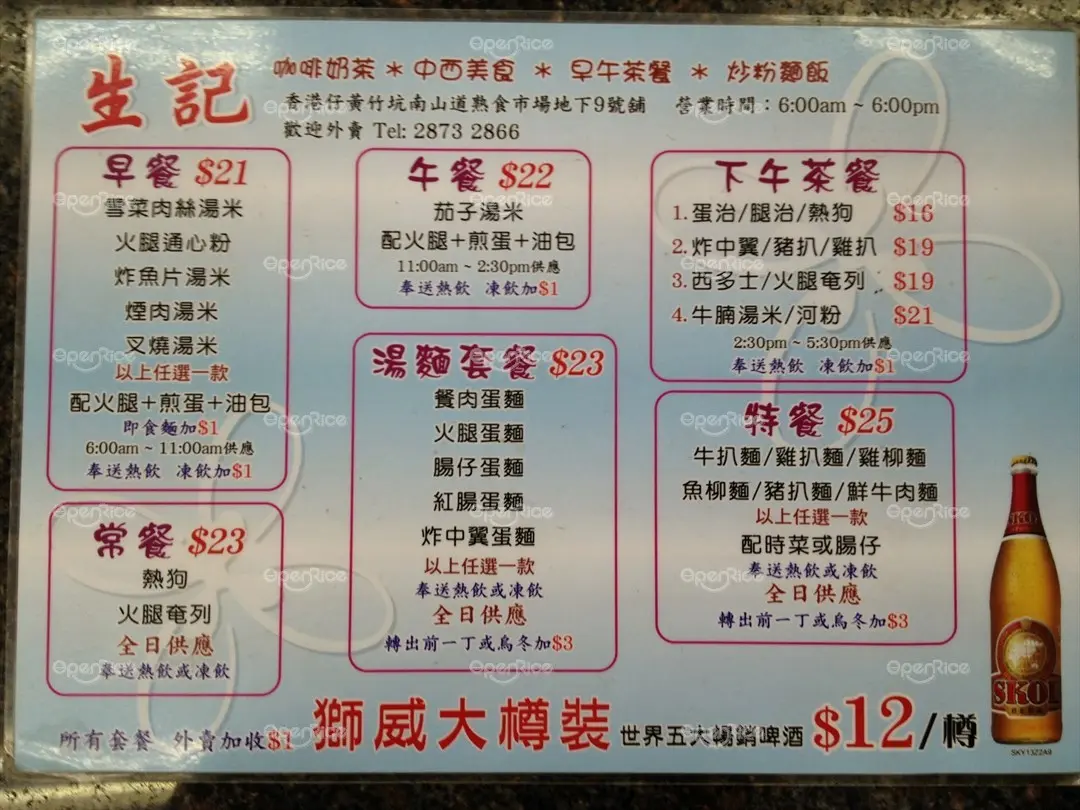 生記
咖啡奶茶 * 中西美食 * 早午茶餐 * 炒粉麵飯
香港仔黃竹坑南山道熟食市場地下9號舖 營業時間：6:00am ~ 6:00pm
歡迎外賣 Tel: 2873 2866
早餐 $21
雪菜肉絲湯米
火腿通心粉
炸魚片湯米
煙肉湯米
叉燒湯米
以上任選一款
配火腿＋煎蛋＋油包
即食麵加$1
6:00am ~ 11:00am供應
奉送熱飲 凍飲加$1
常餐 $23
熱狗
火腿奄列
全日供應
奉送熱飲或凍飲
午餐 $22
茄子湯米
配火腿＋煎蛋＋油包
11:00am ~ 2:30pm供應
奉送熱飲 凍飲加$1
湯麵套餐 $23
餐肉蛋麵
火腿蛋麵
腸仔蛋麵
紅腸蛋麵
炸中翼蛋麵
以上任選一款
奉送熱飲或凍飲
全日供應
轉出前一丁或烏冬加$3
下午茶餐
1. 蛋治/腿治/熱狗 $16
2. 炸中翼/豬扒/雞扒 $19
3. 西多士/火腿奄列 $19
4. 牛腩湯米/河粉 $21
2:30pm ~ 5:30pm供應
奉送熱飲 凍飲加$1
特餐 $25
牛扒麵/雞扒麵/雞柳麵
魚柳麵/豬扒麵/鮮牛肉麵
以上任選一款
配時菜或腸仔
奉送熱飲或凍飲
全日供應
轉出前一丁或烏冬加$3
所有套餐 外賣加收$1
獅威大樽裝 世界五大暢銷啤酒 $12/樽
SKOL
BEER
SKY1322A9
OpenRice